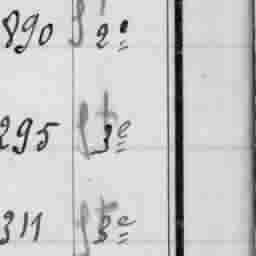 890 2e
295 3e
311 3e